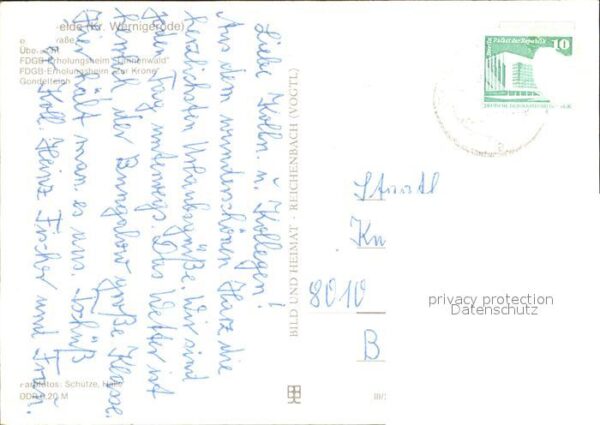 elde (Kr. Wernigerode)
Straße
Übe
FDGB-Erholungsheim "Tannenwald"
FDGB-Erholungsheim "Zur Krone"
Gondelteich
Liebe Kolln. u. Kollegen!
Aus dem wunderschönen Harz die
herzlichsten Urlaubsgrüße. Wir sind
jeden Tag unterwegs. Das Wetter ist
herrlich der Bungalow große Klasse.
Hier hält man es aus. Tschüß
Koll. Heinz Fischer und Frau.
Farbfotos: Schütze, Halle
DDR 0,20 M
BILD UND HEIMAT · REICHENBACH (VOGTL)
III/
Palast der Republik
10
DEUTSCHE DEMOKRATISCHE
Staatl
Kn
8010
B
privacy protection
Datenschutz